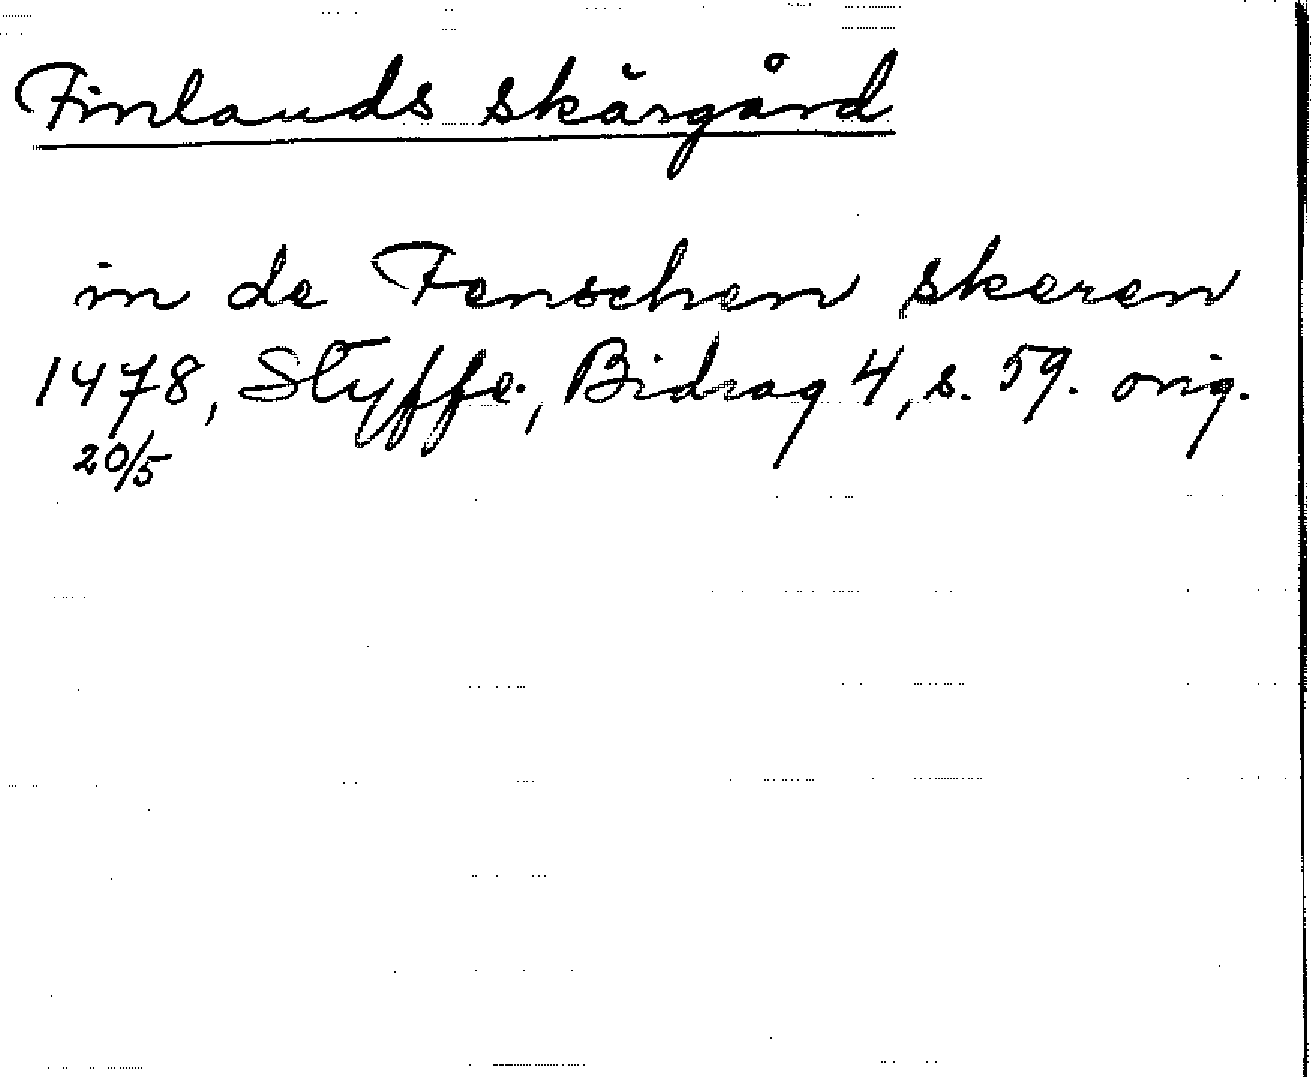 Finlands skärgård
in de Fenschen skeren
1478, Styffe, Bidrag 4, s. 59. orig.
20/5